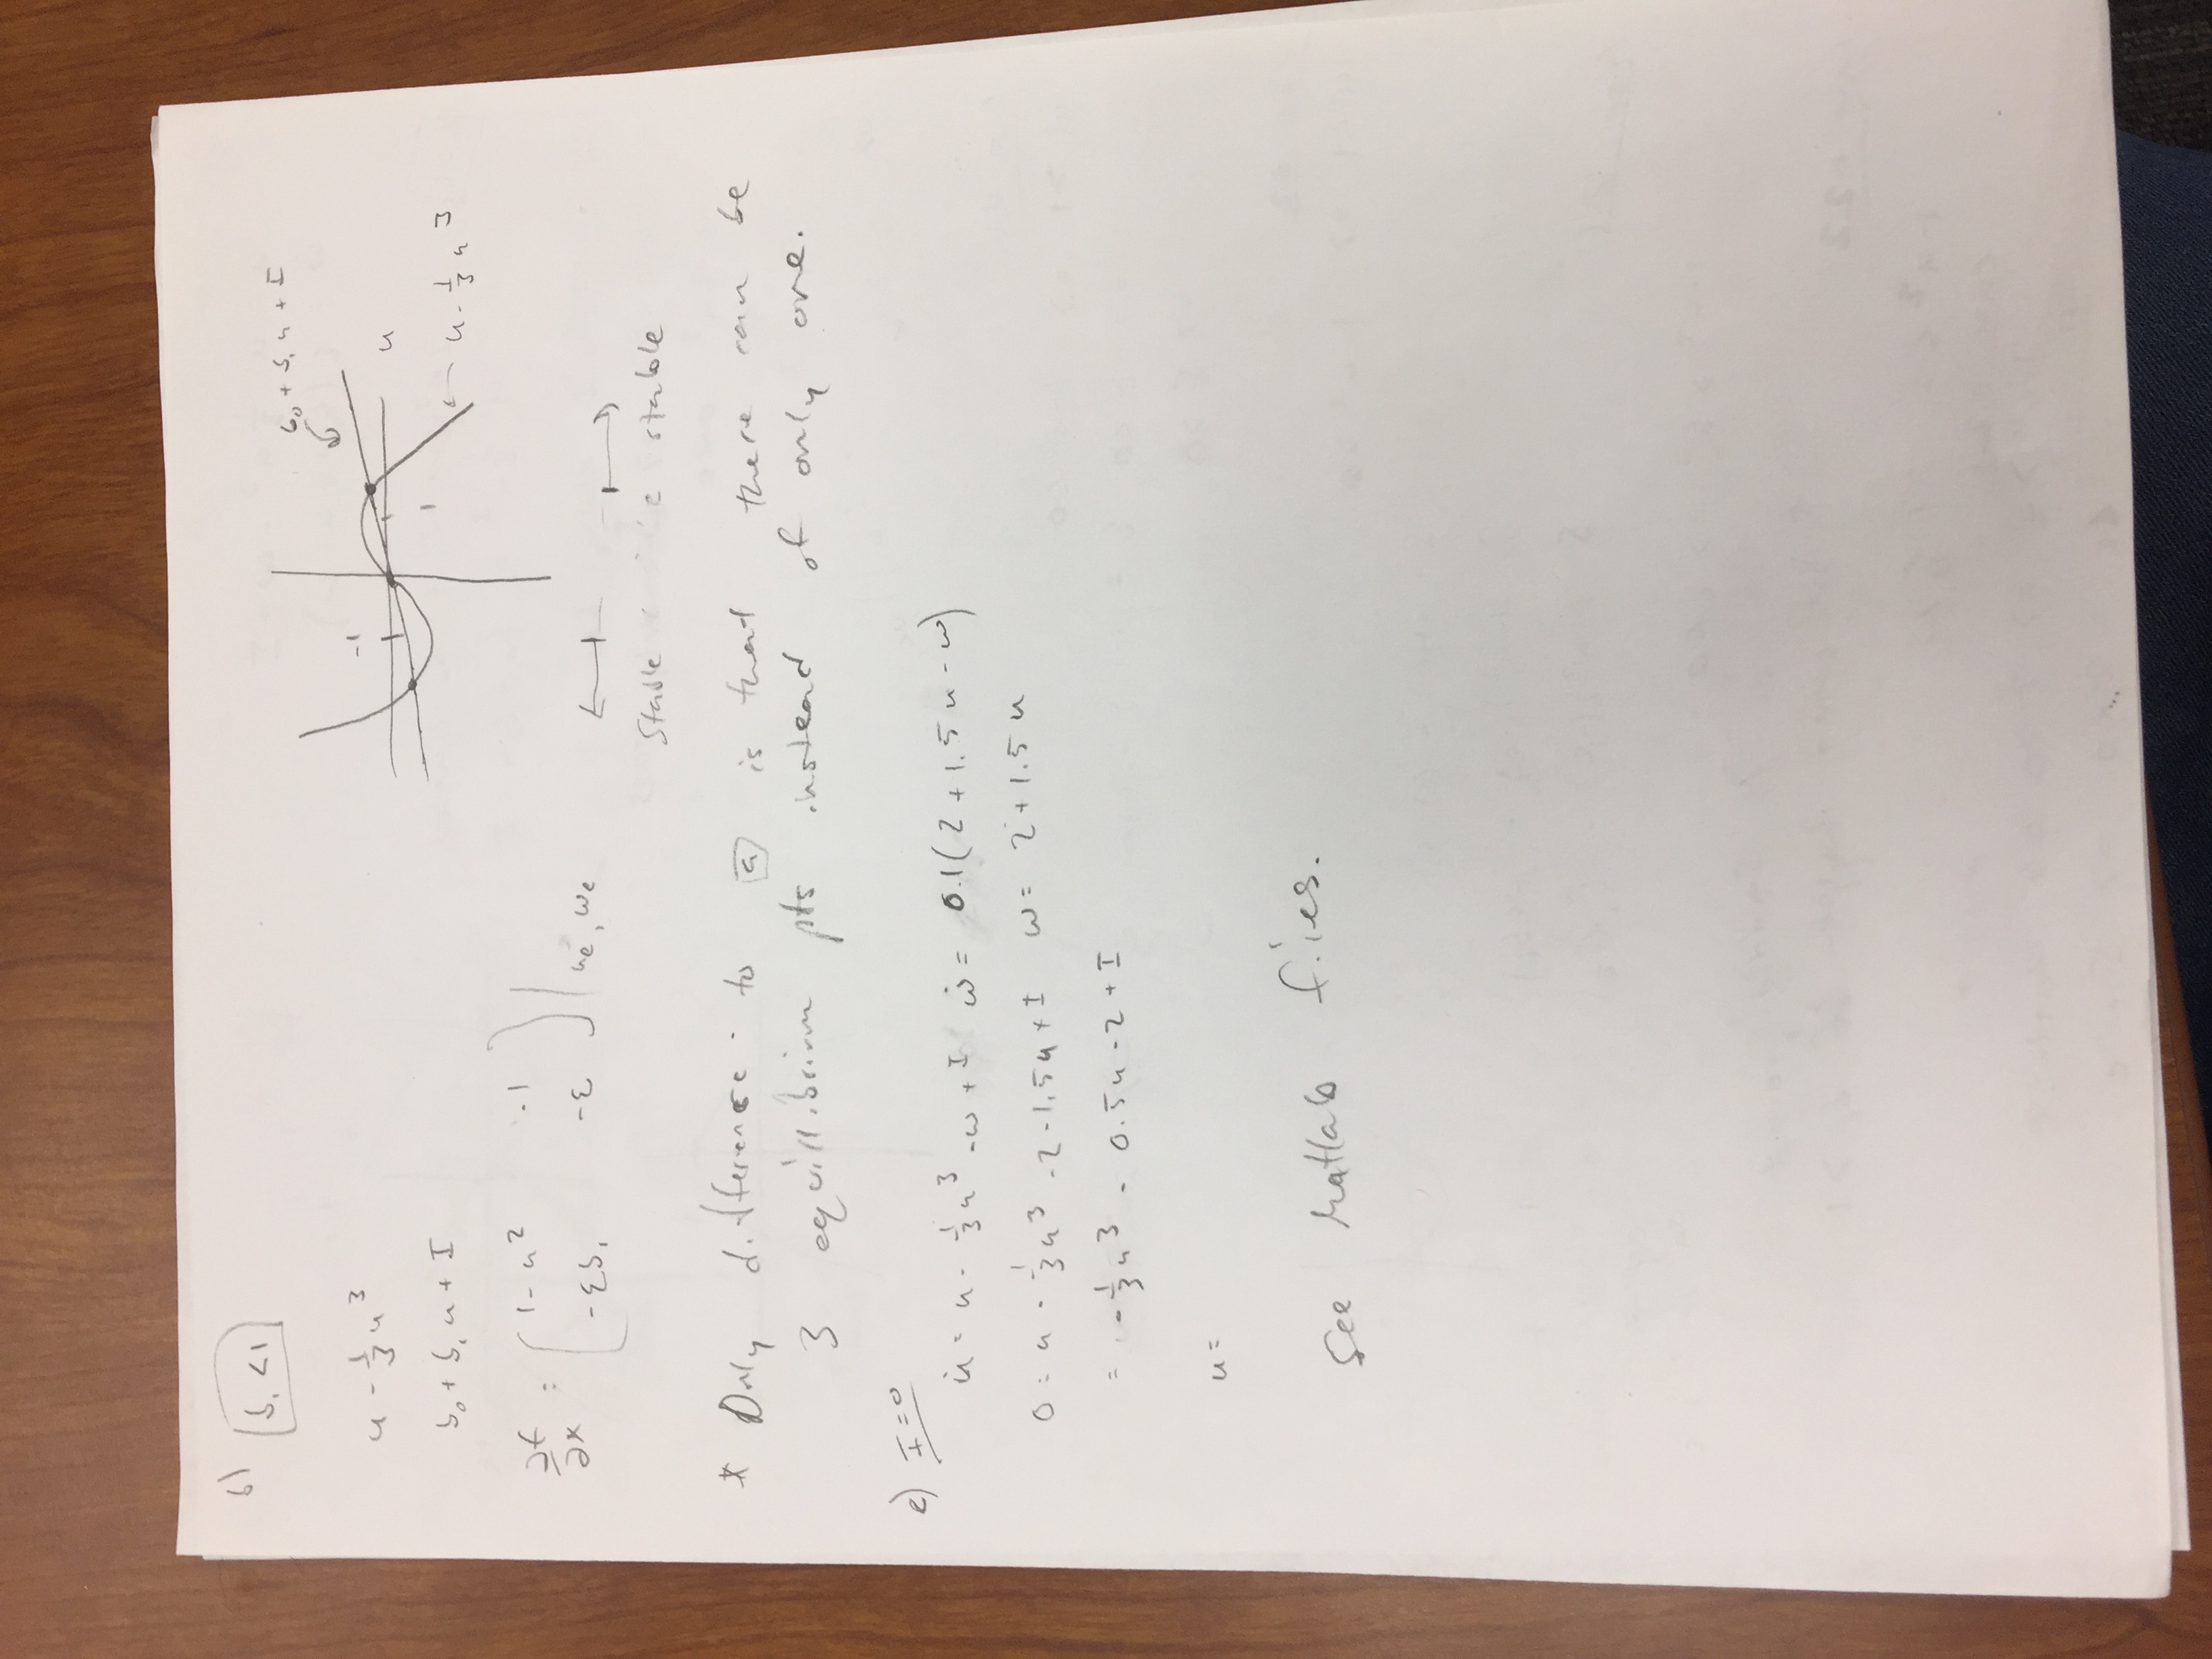 b) b₁ <1
b₀ + b₁ u + I
-1
u
1
u - 1/3 u³
u - 1/3 u³
b₀ + b₁ u + I
∂f/∂x = ( 1-u² -1 ; -εb₁ -ε ) | ue, we
Stable stable
* Only difference to a is that there can be
3 equillibrium pts instead of only one.
c) I=0
u̇ = u - 1/3 u³ - w + I ẇ = 0.1(2+1.5u-w)
0 = u - 1/3 u³ - 2 - 1.5u + I w = 2+1.5u
= - 1/3 u³ - 0.5u - 2 + I
u =
See Matlab files.